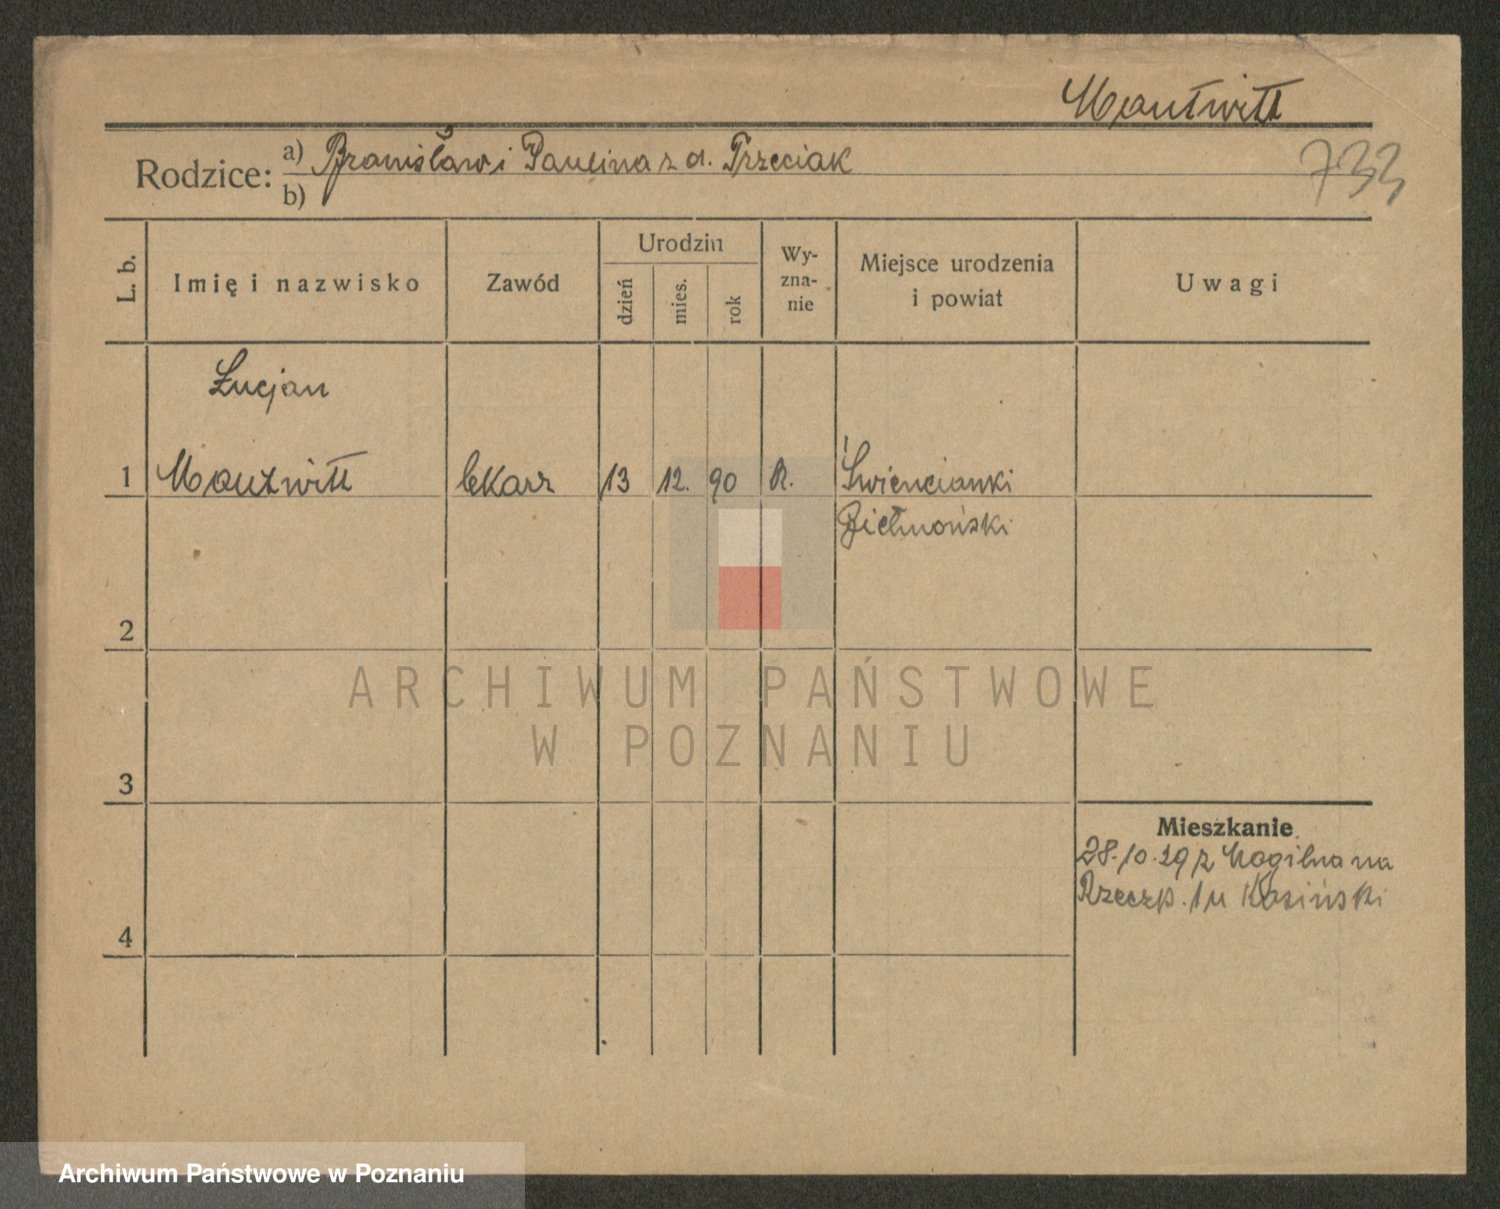 Montwitt
Rodzice: a) Bronisław i Paulina z d. Trzeciak
b)
733
L. b.
Imię i nazwisko
Zawód
Urodzin
dzień
mies.
rok
Wy-
zna-
nie
Miejsce urodzenia
i powiat
Uwagi
Lucjan
1 Montwitt lekarz 13 12. 90 R. Święncianki
2
3
Mieszkanie
28.10.29 z Mogilna na
Rzeczp. 1 u Kosiński
4
ARCHIWUM PAŃSTWOWE
W POZNANIU
Archiwum Państwowe w Poznaniu